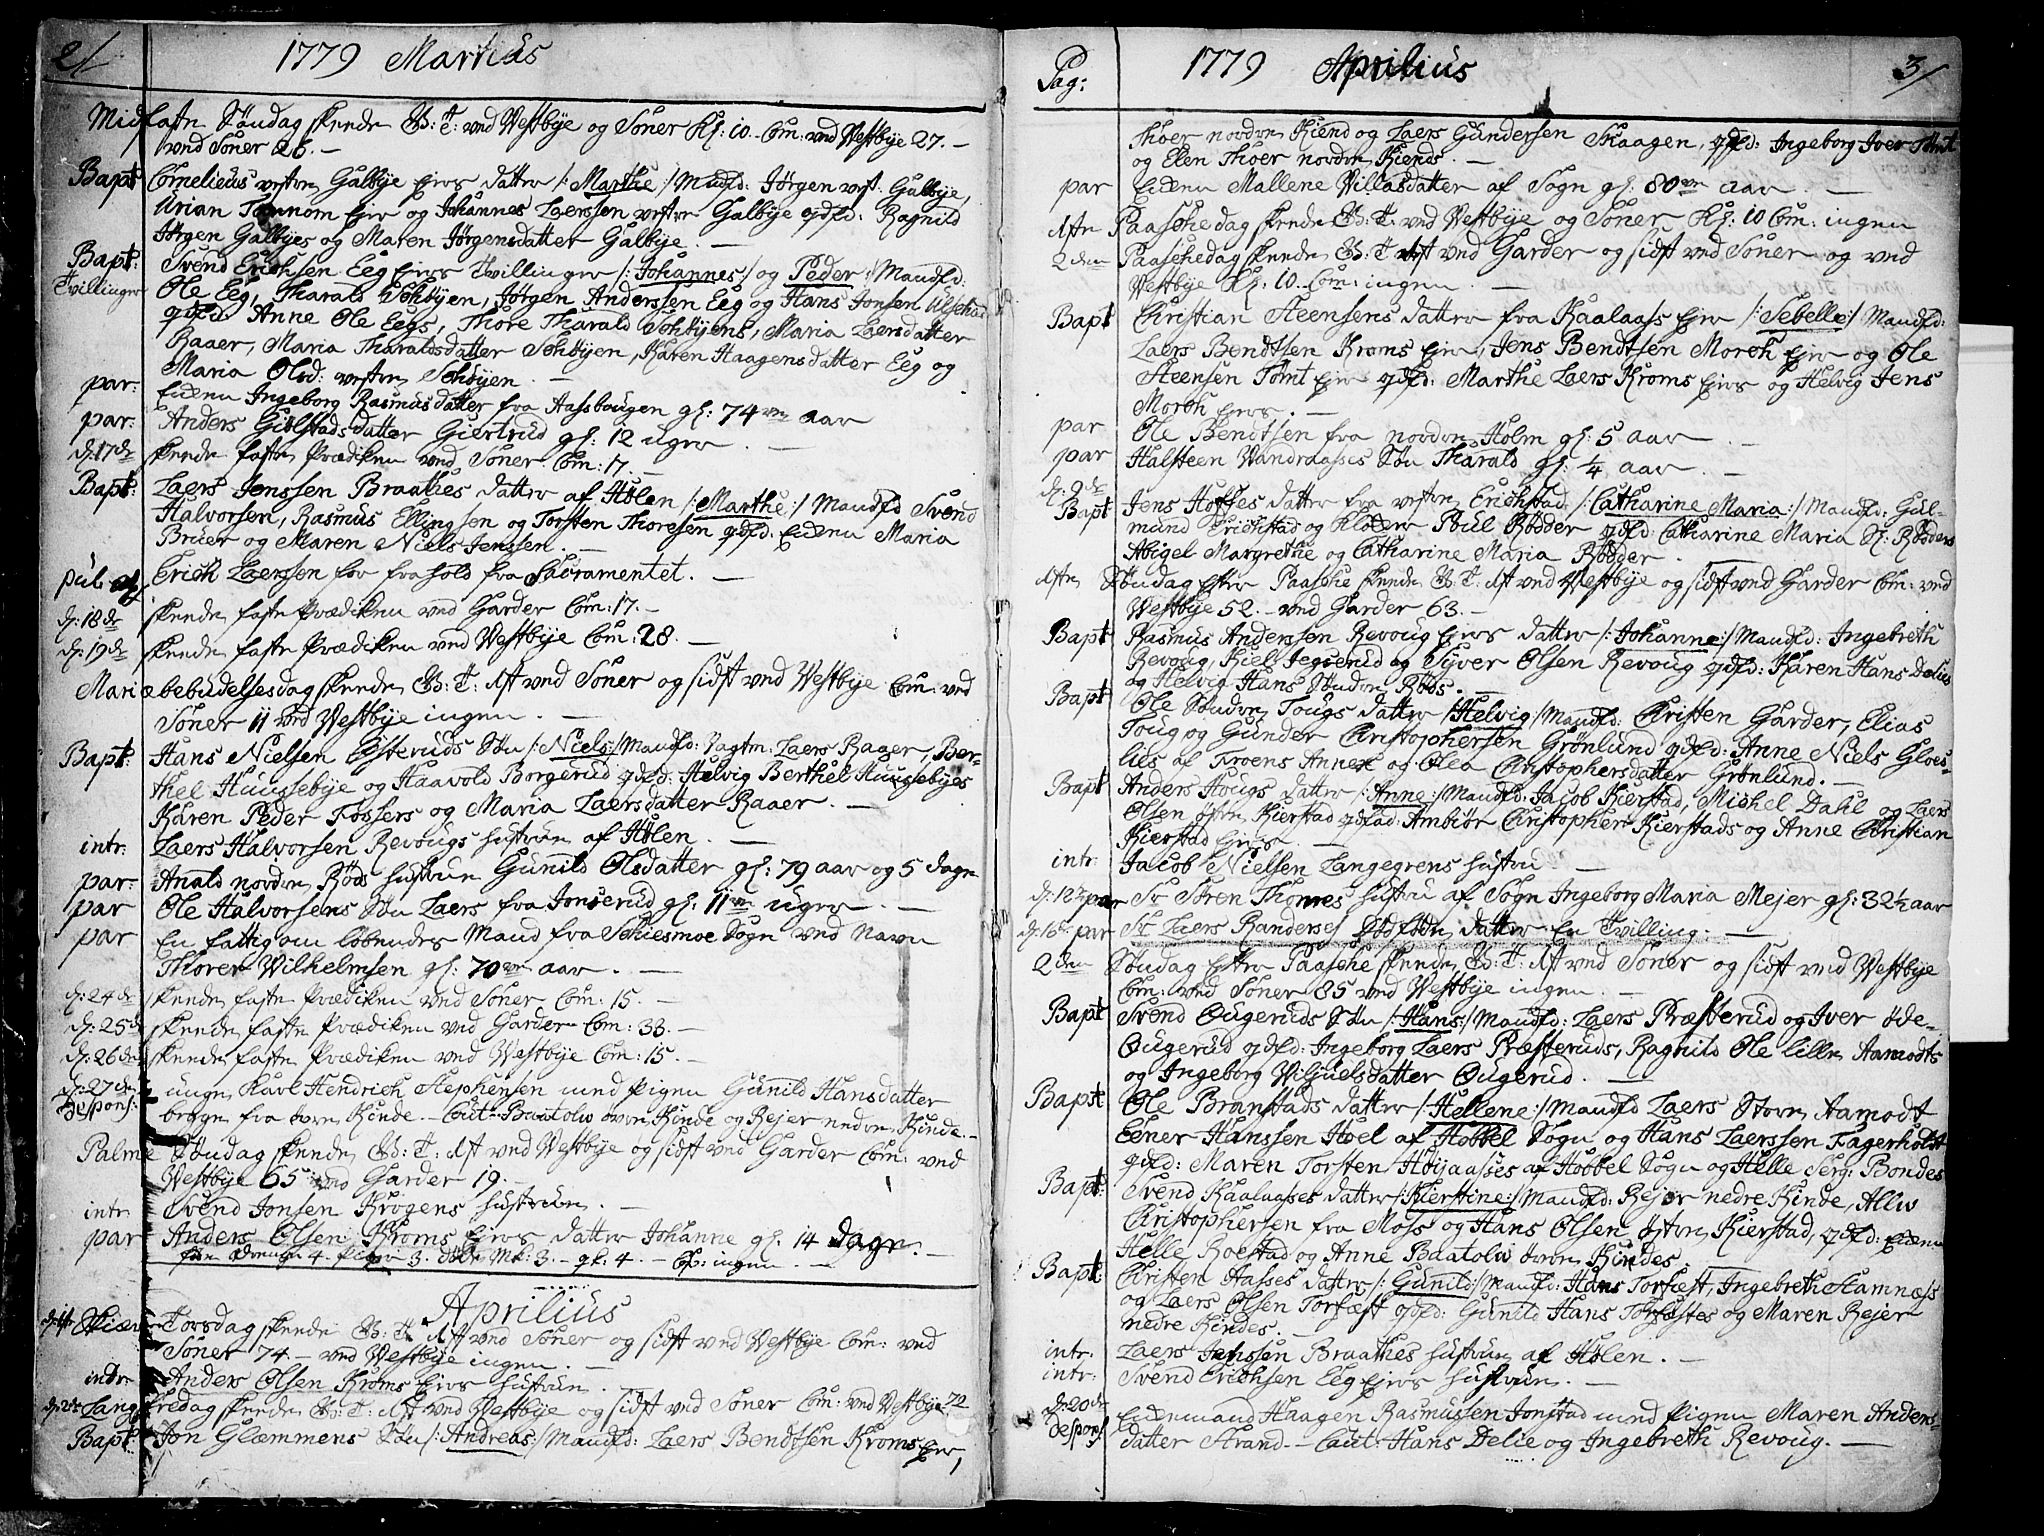 2/ 1779 Martius
Midfaste Søndag skeede G: T: ved Westbye og Soner Kl: 10 Com: ved Westbye 27. –
ved Soner 26. –
Bapt Cornelieus vestre Galbye Ejers datter /: Marthe :/ Maudfd: Jørgen vest: Galbye,
Urian Tomnom Ejer og Johannes Laerssen vestre Galbye qdfd: Ragnild
Jørgen Galbyes og Maren Jørgensdatter Galbye. –
Bapt: Svend Erichsen Eeg Ejers Tvillinger /: Johannes :/ og Peder :/ Maudfd:
Tvillinger Ole Eeg, Tharald Sohbyen, Jørgen Anderssen Eeg og Hans Jonsen
qdfd: Anne Ole Eegs, Thore Tharald Sohbyens, Maria Laersdatter
Raaer, Maria Tharaldsdatter Sohbyen, Karen Haagensdatter Eeg og
Maria Olsd: vestre Sohbyen. –
par: Enken Ingeborg Rasmusdatter fra Aassbougen gl: 74 aar
par: Anders Gulstads datter Giertrud gl: 12 uger. –
d: 17de skeede faste Prædiken ved Soner Com: 17. –
Bapt: Laers Jenssen Braathes datter af Hølen /: Marthe :/ Maudfd Svend
Halvorsen, Rasmus Ellingsen og Torsten Thoresen qdfd: Enken Maria
Bruer og Maren Niels Jenssen. –
pul: af Erich Laerssen for frahold fra Sacramentet. –
d: 18de skeede faste Prædiken ved Garder Com: 17. –
d: 19de skeede faste Prædiken ved Westbye Com: 28. –
Mariæ bebudelsesdag skeede G: T: Ast ved Soner og sidst ved Westbye Com: ved
Soner 11 ved Westbye ingen. –
Bapt: Hans Nielsen Østeruds Søn /: Niels :/ Maudfd: Vagtm: Laers Rager, Ber-
thel Huuslebye og Haavold Borgerud qdfd: Helvig Berthel Huuslebyes
Karen Peder Fossers og Maria Laersdatter Raaer. –
intr: Laers Halvorsen Revougs hustrue af Hølen. –
par: Anald nordre Røds hustrue Gunild Olsdatter gl: 79 aar og 5 dage
par Ole Halvorsens Søn Laers fra Jonserud gl: 11 uger. –
par En fattig om løbendes Mand fra Schiesmoe Sogn ved Navn
Thorer Wilhelmsen gl: 70 aar. –
d: 24de skeede faste Prædiken ved Soner Com: 15. –
d: 25de skeede faste Prædiken ved Garder Com: 33. –
d: 26de skeede faste Prædiken ved Westbye Com: 15. –
d: 27de unge Karl Hendrich Stephensen med Pigen Gunild Hansdatter
despons: begge fra øvre Kinde – Caut: Baatolv øvre Kinde og Rejer nedre Kinde –
Palme Søndag skeede G: T: Ast ved Westbye og sidst ved Garder Com: ved
Westbye 65 ved Garder 19. –
intr: Svend Jonsen Krogens hustrue. –
par Anders Olsen Kroms Ejers datter Johanne gl: 14 dage. –
4. Piger 3. døde Mk: 3. – qk: 4. – Cp: ingen. –
Aprilius
d: 1st Skiær Torsdag skeede G: T: Ast ved Soner og sidst ved Westbye Com: ved
Soner 74. – ved Westbye ingen. –
intr: Anders Olsen Kroms Ejers hustrue. –
d: 2de Lang fredag skeede G: T: Ast ved Westbye og sidst ved Soner Com: ved Westbye 72
Bapt: Jon Glemmens Søn /: Andreas :/ Maudfd: Laers Bendtsen Kroms Ejer,
Pag: 1779 Aprilius 3/
Thoer nordre Kiend og Laers Gundersen Skaagen, qdfd: Ingeborg Iver Tomt
og Elen Thoer nordre Kiends. –
par Enken Mallene Villasdatter af Sogn gl: 80 aar. –
Aste Paaschedag skeede G: T: ved Westbye og Soner Kl: 10 Com: ingen
2den Paaschedag skeede G: T: Ast ved Garder og sidst ved Soner og ved
Westbye Kl: 10. Com: ingen. –
Bapt Christian Steensens datter fra Raalaass Ejer /: Sebelle :/ Maudfd:
Laers Bendtsen Kroms Ejer, Jens Bendtsen Morch Ejer og Ole
Steensen Tomt Ejer qdfd: Marthe Laers Kroms Ejers og Helvig Jens
Morch Ejers. –
par Ole Bendtsen fra nordre Holm gl: 5 aar. –
par Halsteen Wandraasses Søn Tharald gl: 1/4 aar. –
d: 9de
Bapt Jens Hoffes datter fra vestre Erichstad /: Catharine Maria :/ Maudfd: Gul-
mund Erichstad og Klocker Poul Rødder qdfd: Catharine Maria Rødders
Abigel Margrethe og Catharine Maria Rødder. –
Aste Søndag efter Paasche skeede G: T: Ast ved Westbye og sidst ved Garder Com: ved
Westbye 52. – ved Garder 63. –
Bapt Rasmus Anderssen Revoug Ejers datter /: Johanne :/ Maudfd: Ingebreth
Revoug, Kiel Jegserud og Syver Olsen Revoug qdfd: Karen Hans Delies
og Helvig Hans Søndre Røds. –
Bapt Ole Søndre Tougs datter /: Helvig :/ Maudfd: Christen Garder, Elias
Toug og Gunder Christophersen Grønlund qdfd: Anne Niels Gloes-
lies af Kroens Annex og Olea Christophersdatter Grønlund. –
Bapt Anders Hougs datter /: Anne :/ Maudfd: Jacob Kierstad, Michel Dahl og Laers
Olsen østre Kierstad qdfd: Ambior Christopher Kierstads og Anne Christian
Kierstad Ejers. –
intr: Jacob Nielsen Langegrens hustrue. –
d: 12te par Sr Søren Thomes hustru af Sogn Ingeborg Maria Mejer gl: 32½ aar
d: 16 par Sr Laers Randerses Dødfødte datter En Tvilling. –
2den Søndag efter Paasche skeede G: T: Ast ved Soner og sidst ved Westbye
Com: ved Soner 85 ved Westbye ingen. –
Bapt Svend Ougeruds Søn /: Hans :/ Maudfd: Laers Præsterud og Iver øde-
Ougerud qdfd: Ingeborg Laers Præsteruds, Ragnild Ole lille Aamodts
og Ingeborg Vilhuelsdatter Ougerud. –
Bapt Ole Branstads datter /: Hellene :/ Maudfd Laers Store Aamodt
Eener Hanssen Hoel af Hobbel Sogn og Hans Laerssen Fagerholt
qdfd: Maren Torsten Høijaasses af Hobbel Sogn og Helle Serg: Bondes
Bapt: Svend Raalaasses datter /: Kierstine :/ Maudfd: Rejer nedre Kinde, Allu
Christophersen fra Moss og Hans Olsen østre Kierstad, qdfd: Enken
Helle Roestad og Anne Baatolv øvre Kindes. –
Bapt: Christen Aasses datter /: Gunild :/ Maudfd: Hans Torfæst, Ingebreth Stamnæss
og Laers Olsen Torfæst qdfd: Gunild Hans Torfæstes og Maren Rejer
nedre Kindes. –
intr. Laers Jenssen Braathes hustrue af Hølen. –
intr: Svend Erichsen Eeg Ejers hustrue. –
d: 20de Enkemand Haagen Rasmussen Jonstad med Pigen Maren Anders-
despons: datter Strand – Caut: Hans Delie og Ingebreth Revoug. –